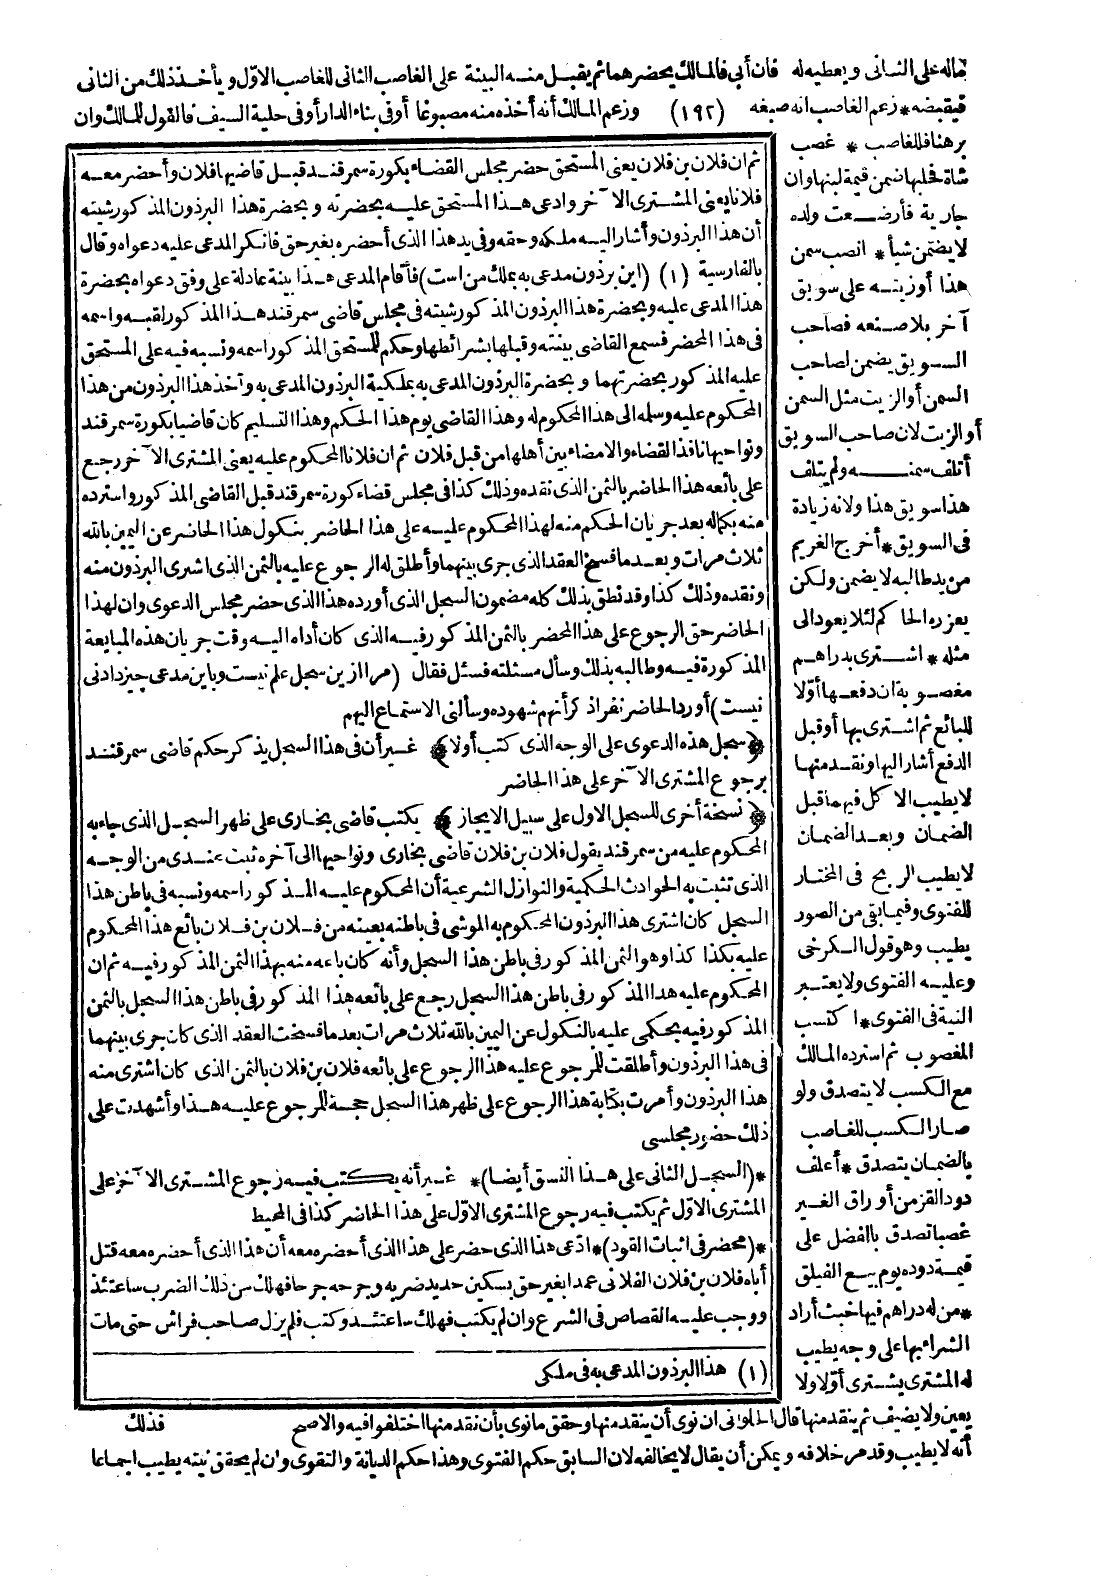 ماله على الثانى ويعطيه له فان أبى فالمالك يحضرهما ثم يقبل منه البينة على الغاصب الثانى للغاصب الاوّل ويأخذ ذلك من الثانى
فيقبضه * زعم الغاصب انه صبغه (١٩٢) وزعم المالك أنه أخذه منه مصبوغا أو فى بناء الدار أو فى حلية السيف فالقول للمالك وان
برهنا فللغاصب * غصب
شاة فحلبها ضمن قيمة لبنها وان
جارية فأرضعت ولده
لا يضمن شيأ * انصب سمن
هذا أو زيته على سويق
آخر بلا صنعه فصاحب
السويق يضمن لصاحب
السمن أو الزيت مثل السمن
أو الزيت لان صاحب السويق
أتلف سمنه ولم يتلف
هذا سويق هذا ولانه زيادة
فى السويق * أخرج الغريم
من يد طالبه لا يضمن ولكن
يعزره الحاكم لئلا يعود الى
مثله * اشترى بدراهم
مغصوبة ان دفعها أوّلا
للبائع ثم اشترى بها أو قبل
الدفع أشار اليها ونقد منها
لا يطيب الاكل فيهما قبل
الضمان وبعد الضمان
لا يطيب الربح فى المختار
للفتوى وفيما بقى من الصور
يطيب وهو قول الكرخى
وعليه الفتوى ولا يعتبر
النية فى الفتوى * اكتسب
المغصوب ثم استرده المالك
مع الكسب لا يتصدق ولو
صار الكسب للغاصب
بالضمان يتصدق * أعلف
دود القز من أوراق الغير
غصبا تصدق بالفضل على
قيمة دوده يوم بيع الفيلق
* من له دراهم فيها خبث أراد
الشراء بها على وجه يطيب
له المشترى يشترى أوّلا ولا
ثم ان فلان بن فلان يعنى المستحق حضر مجلس القضاء بكورة سمرقند قبل قاضيها فلان وأحضر معه
فلانا يعنى المشترى الآخر وادعى هذا المستحق عليه بحضرته وبحضرة هذا البرذون المذكور شيته
أن هذا البرذون وأشار اليه ملكه وحقه وفى يد هذا الذى أحضره بغير حق فانكر المدعى عليه دعواه وقال
بالفارسية (١) (اين برذون مدعى به بملك من است) فأقام المدعى هذا بينة عادلة على وفق دعواه بحضرة
هذا المدعى عليه وبحضرة هذا البرذون المذكور شيته فى مجلس قاضى سمرقند هذا المذكور لقبه واسمه
فى هذا المحضر فسمع القاضى بينته وقبلها بشرائطها وحكم للمستحق المذكور اسمه ونسبه فيه على المستحق
عليه المذكور بحضرتهما وبحضرة البرذون المدعى به بملكية البرذون المدعى به وأخذ هذا البرذون من هذا
المحكوم عليه وسلمه الى هذا المحكوم له وهذا القاضى يوم هذا الحكم وهذا التسليم كان قاضيا بكورة سمرقند
ونواحيها نافذ القضاء والامضاء بين أهلها من قبل فلان ثم ان فلانا المحكوم عليه يعنى المشترى الآخر رجع
على بائعه هذا الحاضر بالثمن الذى نقده وذلك كذا فى مجلس قضاء كورة سمرقند قبل القاضى المذكور واسترده
منه بكماله بعد جريان الحكم منه لهذا المحكوم عليه على هذا الحاضر بنكول هذا الحاضر عن اليمين بالله
ثلاث مرات وبعد ما فسخ العقد الذى جرى بينهما وأطلق له الرجوع عليه بالثمن الذى اشترى البرذون منه
ونقده وذلك كذا وقد نطق بذلك كله مضمون السجل الذى أورده هذا الذى حضر مجلس الدعوى وان لهذا
الحاضر حق الرجوع على هذا المحضر بالثمن المذكور فيه الذى كان أداه اليه وقت جريان هذه المبايعة
المذكورة فيه وطالبه بذلك وسأل مسئلته فسئل فقال (مرا ازين سجل علم نيست وباين مدعى چيز دادنى
نيست) أورد الحاضر نفرا ذكر أنهم شهوده وسألنى الاستماع اليهم
﴿سجل هذه الدعوى على الوجه الذى كتب أولا﴾ غير أن فى هذا السجل يذكر حكم قاضى سمرقند
برجوع المشترى الآخر على هذا الحاضر
﴿نسخة أخرى للسجل الاول على سبيل الايجاز﴾ يكتب قاضى بخارى على ظهر السجل الذى جاء به
المحكوم عليه من سمرقند يقول فلان بن فلان قاضى بخارى ونواحيها الى آخره ثبت عندى من الوجه
الذى تثبت به الحوادث الحكمية والنوازل الشرعية أن المحكوم عليه المذكور اسمه ونسبه فى باطن هذا
السجل كان اشترى هذا البرذون المحكوم به الموشى فى باطنه بعينه من فلان بن فلان بائع هذا المحكوم
عليه بكذا كذا وهو الثمن المذكور فى باطن هذا السجل وأنه كان باعه منه بهذا الثمن المذكور فيه ثم ان
المحكوم عليه هذا المذكور فى باطن هذا السجل رجع على بائعه هذا المذكور فى باطن هذا السجل بالثمن
المذكور فيه بحكمى عليه بالنكول عن اليمين بالله ثلاث مرات بعد ما فسخت العقد الذى كان جرى بينهما
فى هذا البرذون وأطلقت للمرجوع عليه هذا الرجوع على بائعه فلان بن فلان بالثمن الذى كان اشترى منه
هذا البرذون وأمرت بكتابة هذا الرجوع على ظهر هذا السجل حجة للمرجوع عليه هذا وأشهدت على
ذلك حضور مجلسى
* (السجل الثانى على هذا النسق أيضا) * غير أنه يكتب فيه رجوع المشترى الآخر على
المشترى الاوّل ثم يكتب فيه رجوع المشترى الاوّل على هذا الحاضر كذا فى المحيط
* (محضر فى اثبات القود) * ادّعى هذا الذى حضر على هذا الذى أحضره معه أن هذا الذى أحضره معه قتل
أباه فلان بن فلان الفلانى عمدا بغير حق بسكين حديد ضربه وجرحه جرحا فهلك من ذلك الضرب ساعتئذ
ووجب عليه القصاص فى الشرع وان لم يكتب فهلك ساعتئذ وكتب فلم يزل صاحب فراش حتى مات
(١) هذا البرذون المدعى به فى ملكى
يعين ولا يضيف ثم ينقد منها قال الحلوانى ان نوى أن ينقد منها وحقق ما نوى بأن نقد منها اختلفوا فيه والاصح فذلك
أنه لا يطيب وقد مر خلافه ويمكن أن يقال لا يخالفه لان السابق حكم الفتوى وهذا حكم الديانة والتقوى وان لم يحقق نيته يطيب اجماعا